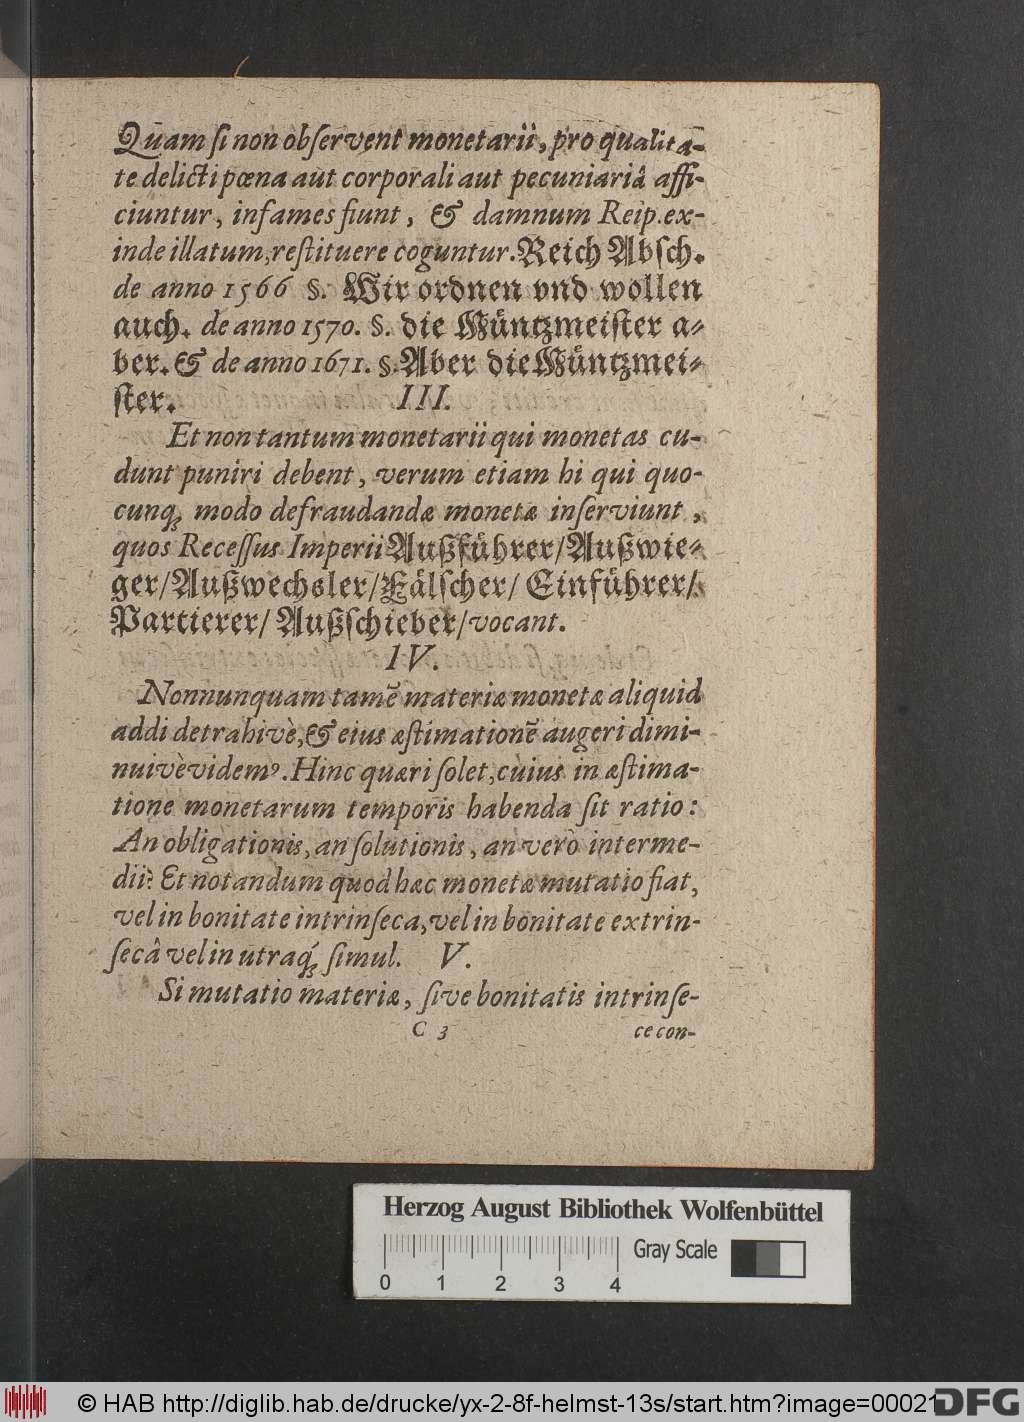 Quam ſi non obſervent monetarii, pro qualita-
te delicti pœna aut corporali aut pecuniariâ affi-
ciuntur, infames fiunt, & damnum Reip. ex-
inde illatum, reſtituere coguntur. Reich Abſch.
de anno 1566 §. Wir ordnen vnd wollen
auch. de anno 1570. §. die Müntzmeiſter a-
ber. & de anno 1671. §. Aber die Müntzmei-
ſter. III.
Et non tantum monetarii qui monetas cu-
dunt puniri debent, verum etiam hi qui quo-
cunq; modo defraudandæ monetæ inſerviunt,
quos Receſſus Imperii Außführer/ Außwie-
ger/ Außwechsler/ Fälſcher/ Einführer/
Partierer/ Außſchieber/ vocant.
IV.
Nonnunquam tamē materiæ monetæ aliquid
addi detrahivè, & eius æſtimationē augeri dimi-
nuivè videmꝰ. Hinc quæri ſolet, cuius in æſtima-
tione monetarum temporis habenda ſit ratio:
An obligationis, an ſolutionis, an verò interme-
dii? Et notandum quod hæc monetæ mutatio fiat,
vel in bonitate intrinſeca, vel in bonitate extrin-
ſecâ vel in utraq́; ſimul. V.
Si mutatio materiæ, ſive bonitatis intrinſe-
C 3 ce con-
Herzog August Bibliothek Wolfenbüttel
Gray Scale
0 1 2 3 4
© HAB http://diglib.hab.de/drucke/yx-2-8f-helmst-13s/start.htm?image=00021
DFG